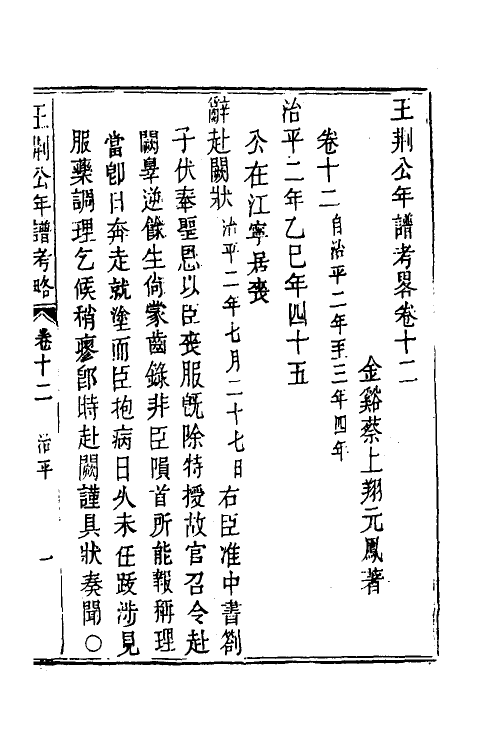 王荆公年譜考畧卷十二
金谿蔡上翔元鳳著
卷十二 自治平二年至三年四年
治平二年乙巳年四十五
公在江寧居喪
辭赴闕狀 治平二年七月二十七日 右臣准中書劄
子伏奉聖恩以臣喪服旣除特授故官召令赴
闕辠逆餘生倘蒙齒錄非臣隕首所能報稱理
當卽日奔走就塗而臣抱病日久未任跋涉見
服藥調理乞候稍瘳卽時赴闕謹具狀奏聞〇
王荆公年譜考略 卷十二 治平 一